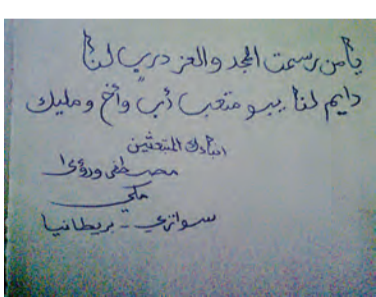 يامن رسمت المجد والعز دربٍ لنا
دايم لنا يبو متعب أب وأخ ومليك
ابنائك المبتعثين
مصطفى ورؤى
مكي
سوانزي - بريطانيا